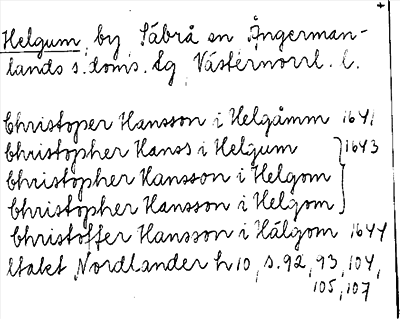 Helgum, by, Säbrå sn Ångerman-
lands s. doms. tg Västernorrl. l.
Christoper Hansson i Helgåmm 1641
Christopher Hanss i Helgum } 1643
Christopher Hansson i Helgom
Christopher Hansson i Helgom
Christoffer Hansson i Hälgom 1644
Utakt Nordlander h 10, s. 92, 93, 104,
105, 107,